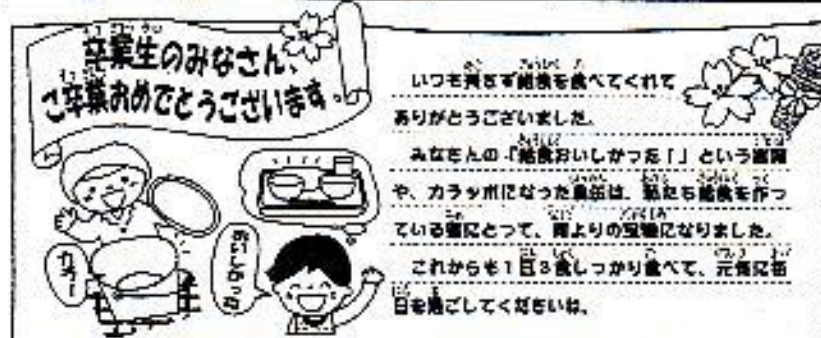 卒業生のみなさん、
ご卒業おめでとうございます。
いつも残さず給食を食べてくれて
ありがとうございました。
みなさんの「給食おいしかった！」という
や、カラッポになった食缶は、私たち給食を作っ
ている者にとって、何よりの宝物になりました。
これからも1日3食しっかり食べて、元気に毎
日を過ごしてくださいね。
おいしかった
カラー